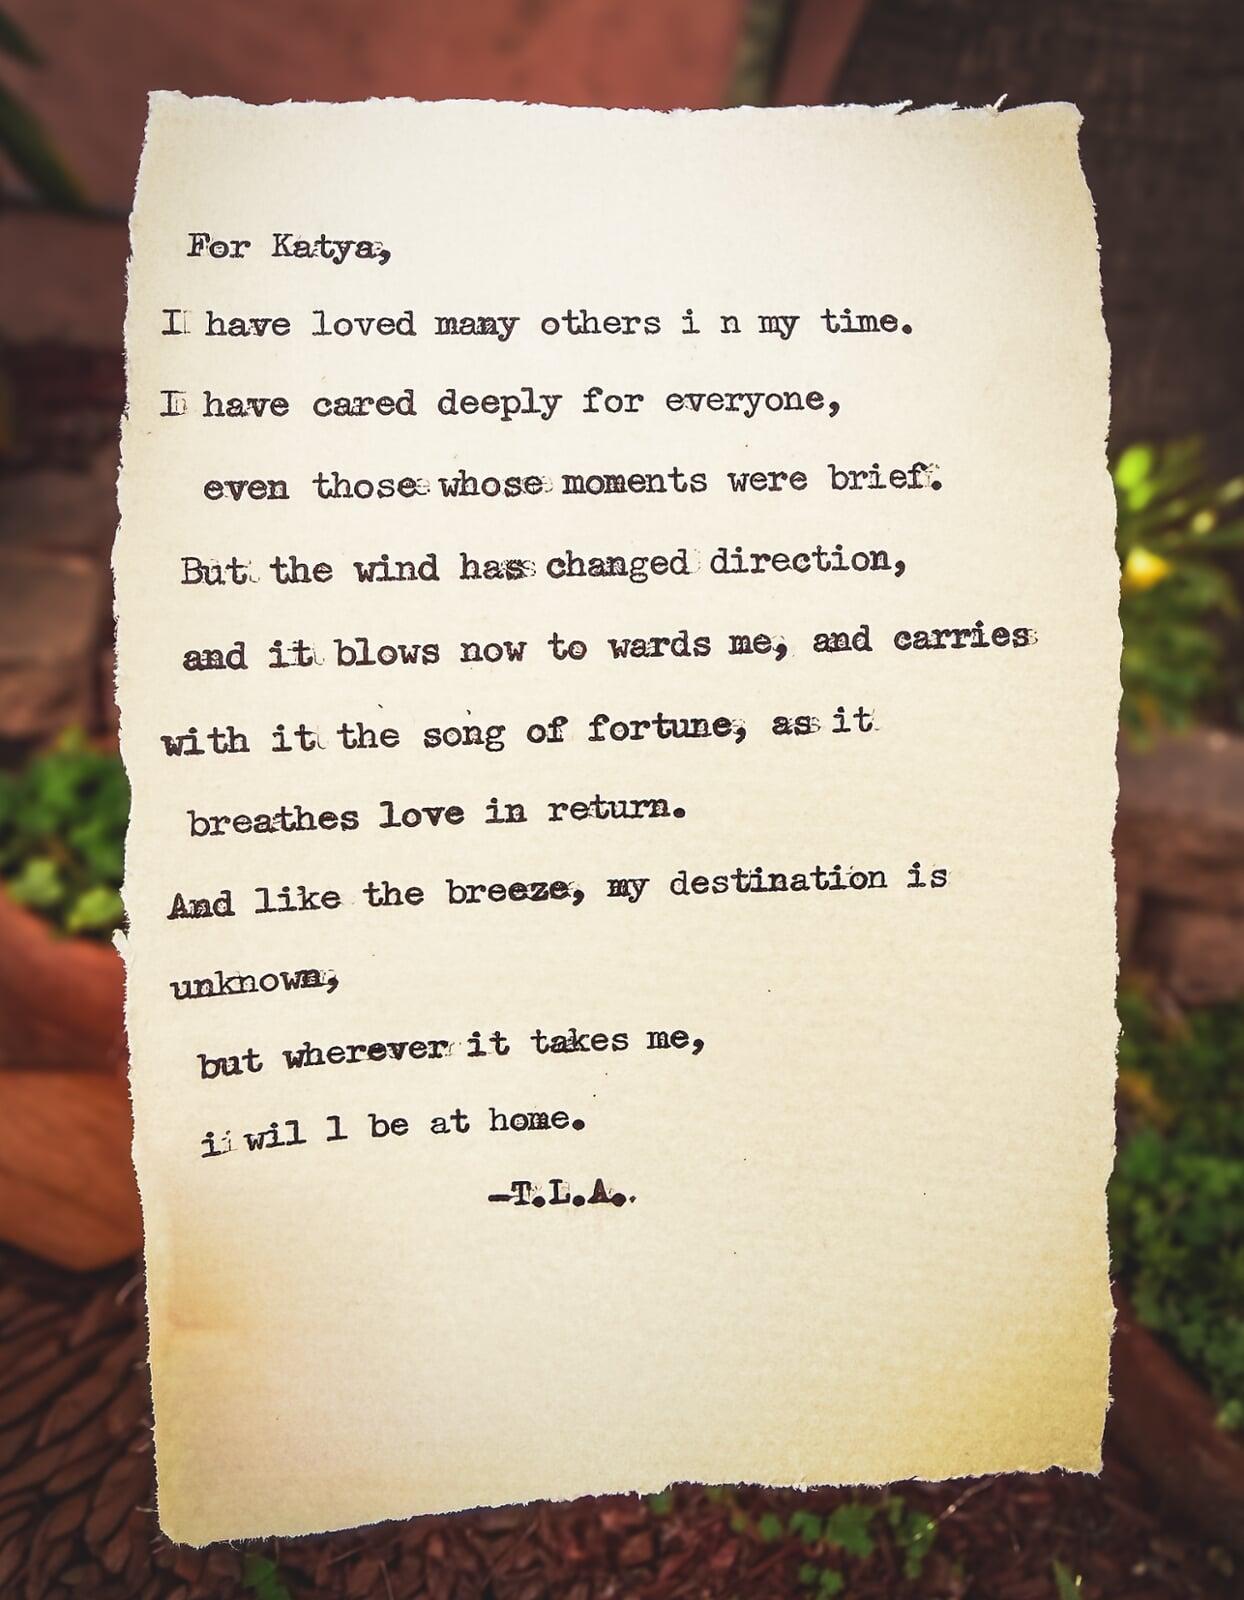 For Katya,
I have loved many others i n my time.
I have cared deeply for everyone,
even those whose moments were brief.
But the wind has changed direction,
and it blows now to wards me, and carries
with it the song of fortune, as it
breathes love in return.
And like the breeze, my destination is
unknown,
but wherever it takes me,
i wil l be at home.
-T.L.A.